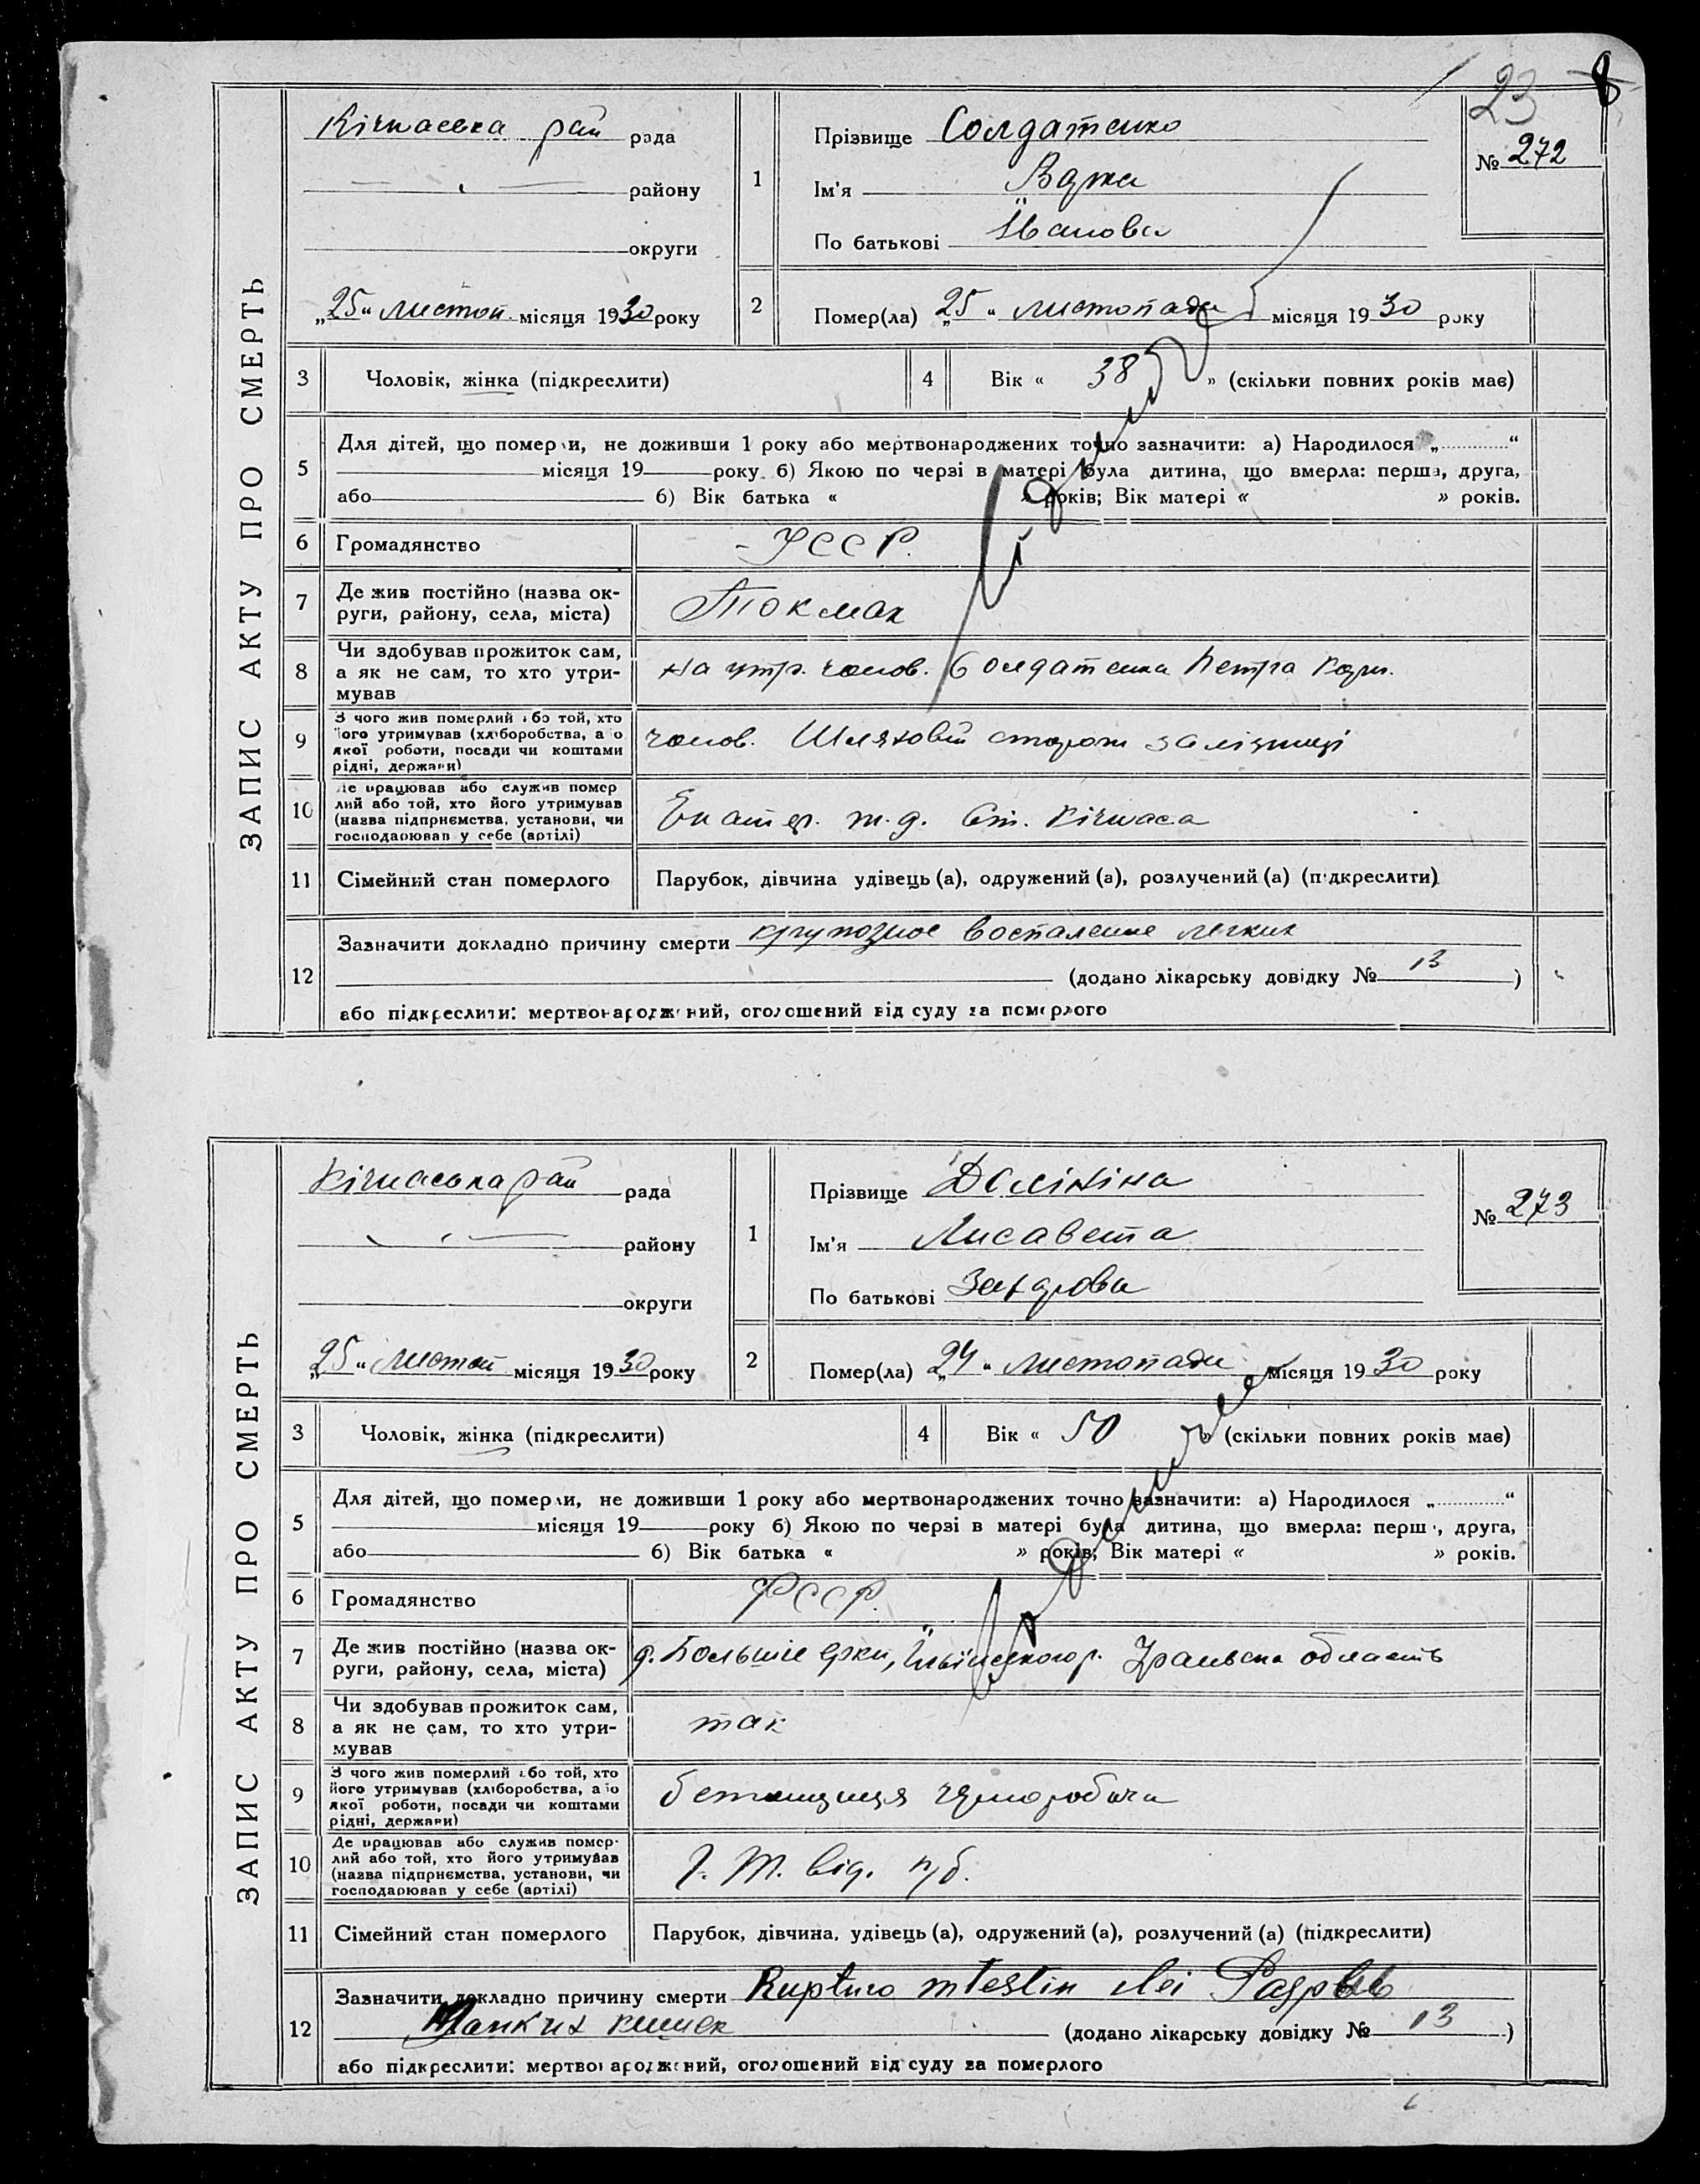 23 8
ЗАПИС АКТУ ПРО СМЕРТЬ
Кічкаська рай рада
району
округи
„25“ листоп. місяця 1930 року
1
Прізвище Солдатенко
Ім'я
По батькові Іванова
№ 272
2
Помер(ла) „25“ листопада місяця 1930 року
3 Чоловік, жінка (підкреслити)
4 Вік « 38 » (скільки повних років має)
5
Для дітей, що померли, не доживши 1 року або мертвонароджених точно зазначити: а) Народилося „ “
місяця 19 року б) Якою по черзі в матері була дитина, що вмерла: перша, друга,
або б) Вік батька « » років; Вік матері « » років.
6 Громадянство УССР.
7 Де жив постійно (назва ок-
руги, району, села, міста) Токмак
8 Чи здобував прожиток сам,
а як не сам, то хто утри-
мував
на утр. чолов. Солдатенка Петра
9 З чого жив померлий або той, хто
його утримував (хліборобства, або
якої роботи, посади чи коштами
рідні, держави)
чолов. Шляховий сторож залізниці
10 Де працював або служив помер
лий або той, хто його утримував
(назва підприємства, установи, чи
господарював у себе (артілі)
Екатер. Ст. Кічкаса
11 Сімейний стан померлого Парубок, дівчина удівець (а), одружений (а), розлучений (а) (підкреслити)
12
Зазначити докладно причину смерти крупозное воспаление легких
(додано лікарську довідку № 13 )
або підкреслити: мертвонароджений, оголошений від суду за померлого
ЗАПИС АКТУ ПРО СМЕРТЬ
Кічкаська рай рада
району
округи
„25“ листоп місяця 1930 року
1
Прізвище
Ім'я Лисавета
По батькові Захарова
№ 273
2
Помер(ла) „24“ листопада місяця 1930 року
3 Чоловік, жінка (підкреслити)
4 Вік « 50 » (скільки повних років має)
5
Для дітей, що померли, не доживши 1 року або мертвонароджених точно зазначити: а) Народилося „ “
місяця 19 року б) Якою по черзі в матері була дитина, що вмерла: перш , друга,
або б) Вік батька « » років; Вік матері « » років.
6 Громадянство РССР.
7 Де жив постійно (назва ок-
руги, району, села, міста) д. Больше р. Уральська область
8 Чи здобував прожиток сам,
а як не сам, то хто утри-
мував
так
9 З чого жив померлий або той, хто
його утримував (хліборобства, або
якої роботи, посади чи коштами
рідні, держави)
бетонщиця чорноробоча
10 Де працював або служив помер-
лий або той, хто його утримував
(назва підприємства, установи, чи
господарював у себе (артілі)
від.
11 Сімейний стан померлого Парубок, дівчина, удівець (а), одружений (а), розлучений (а) (підкреслити)
12
Зазначити докладно причину смерти Разрыв
тонких кишек (додано лікарську довідку № 13 )
або підкреслити: мертвонароджений, оголошений від суду за померлого